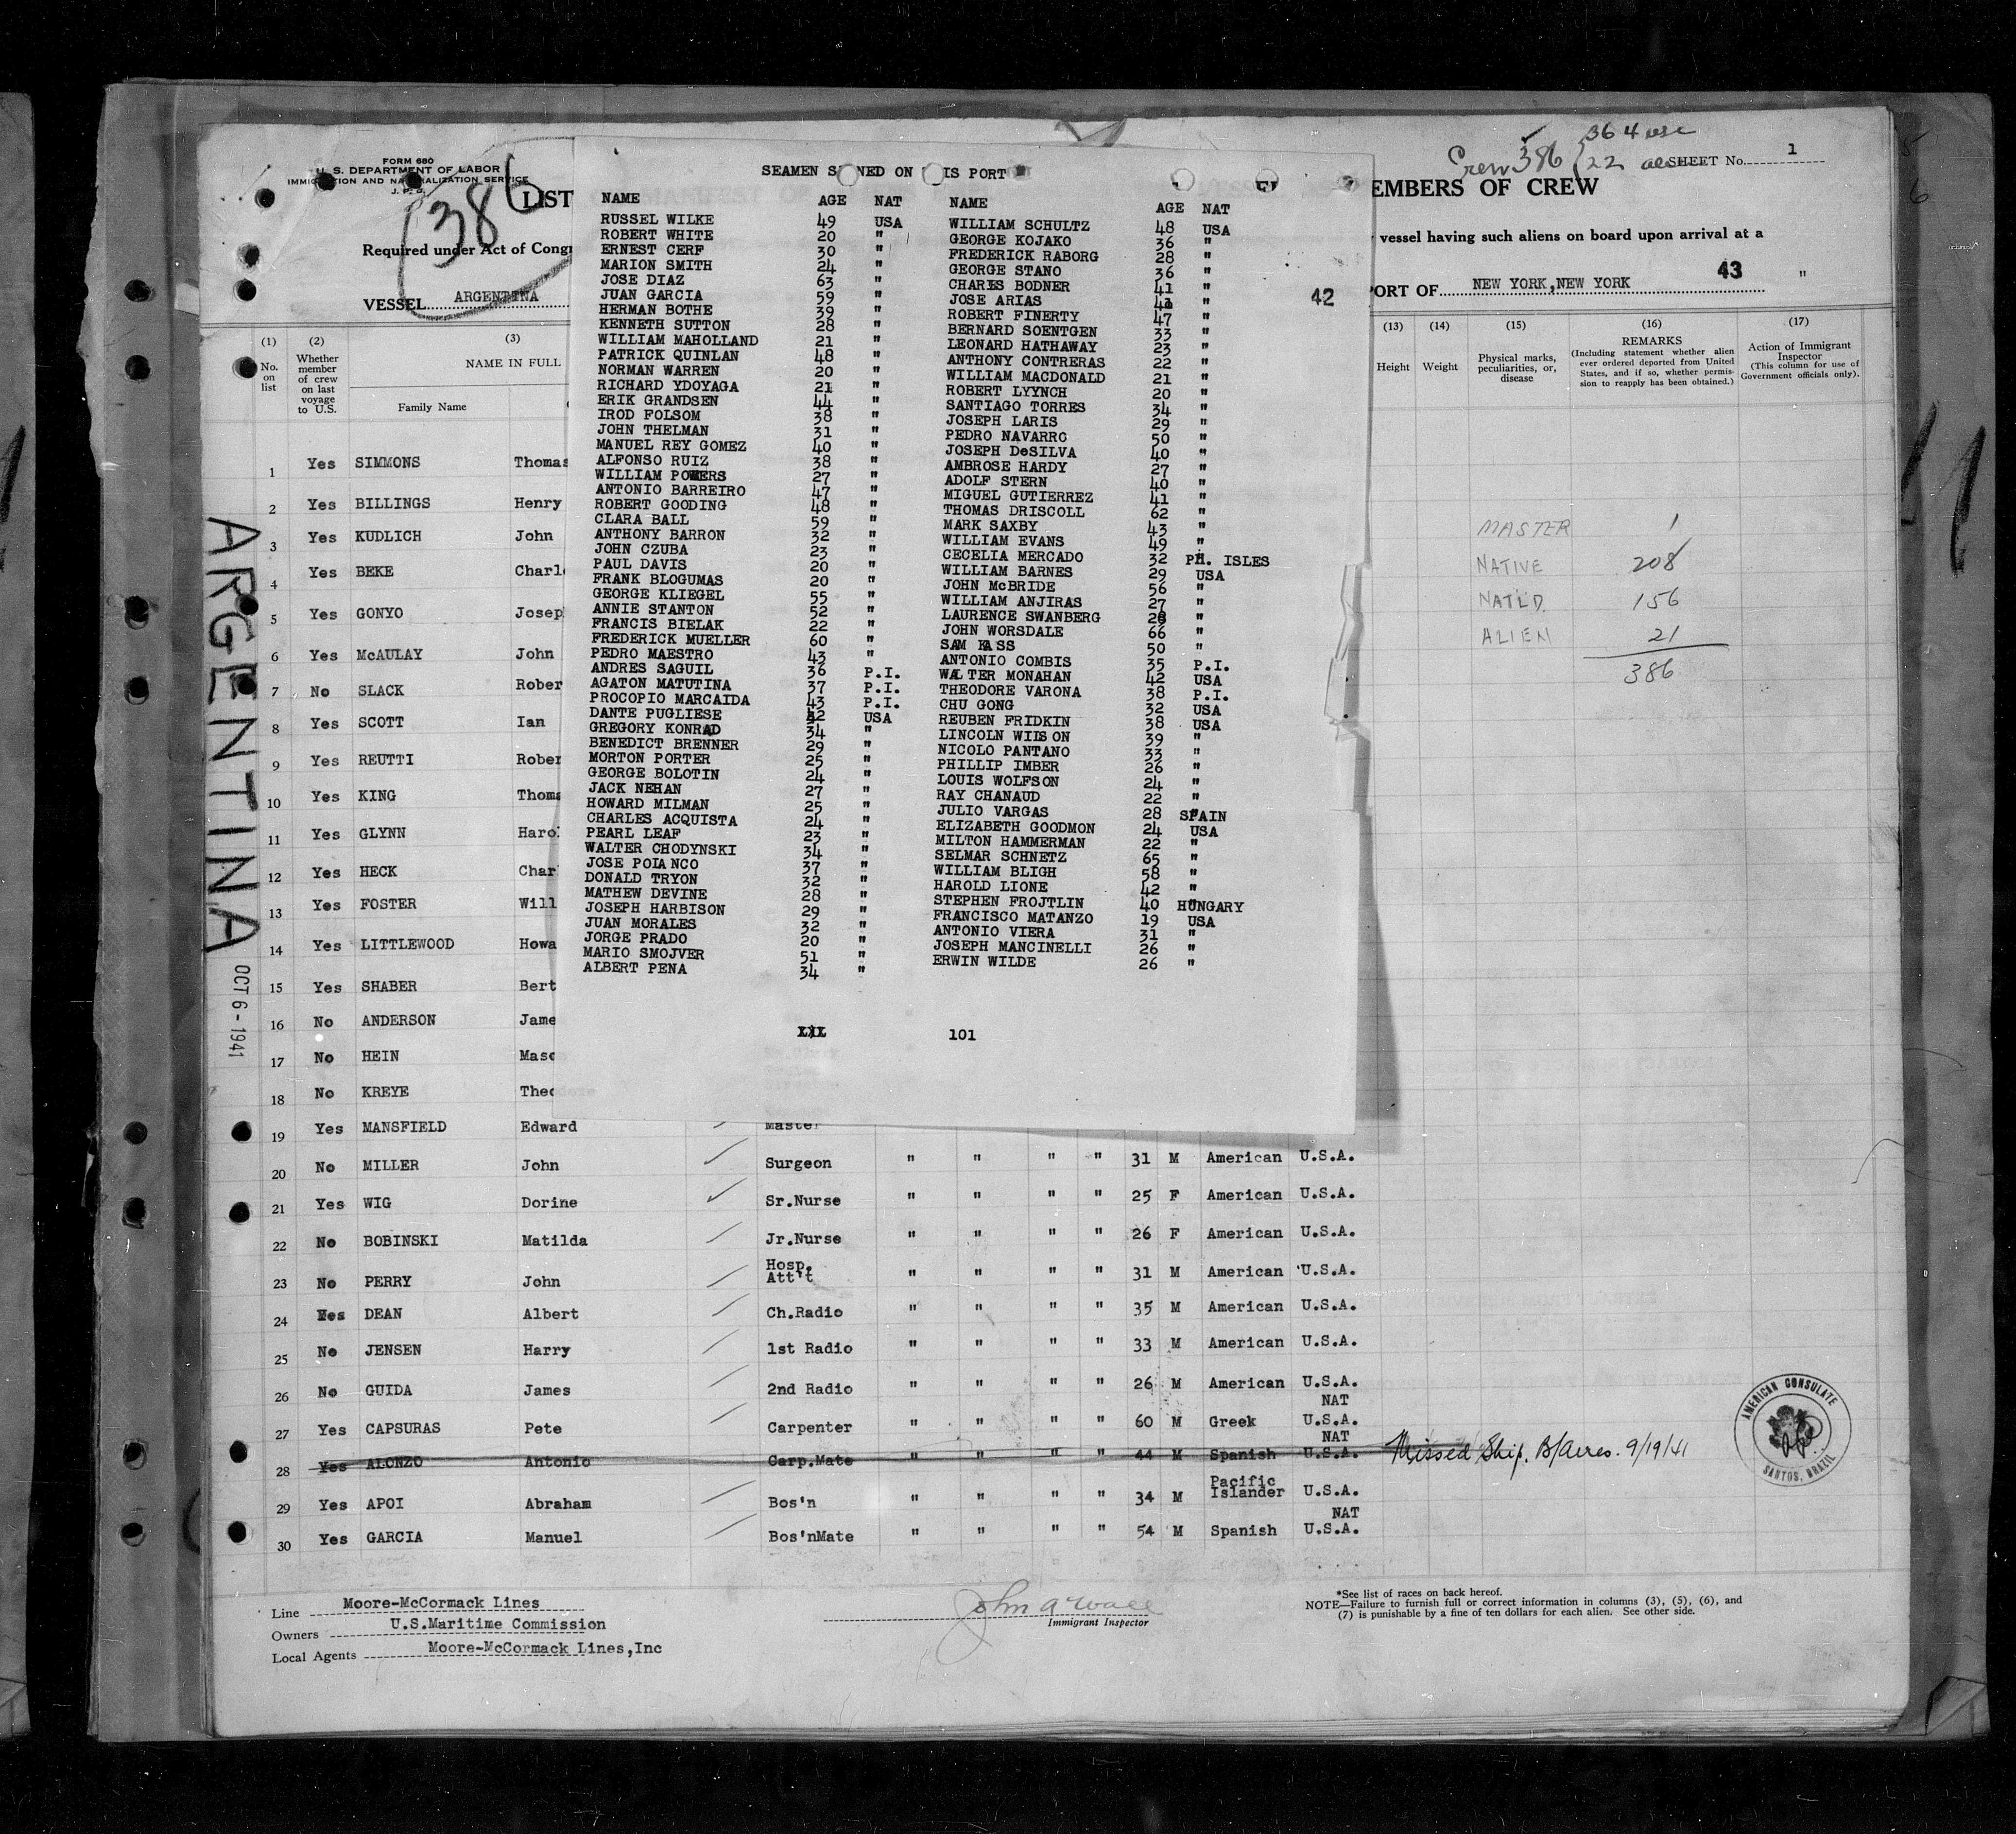 FORM 680
U. S. DEPARTMENT OF LABOR
IMMIGRATION AND NATURALIZATION SERVICE
386
LIST
EMBERS OF CREW
Crew 386 { 364 usc
22 aliens
SHEET No. 1
Required under Act of Congr
vessel having such aliens on board upon arrival at a
VESSEL ARGENTINA
PORT OF NEW YORK,NEW YORK
43
"
(1) No. on list
(2) Whether member of crew on last voyage to U.S.
(3) NAME IN FULL
Family Name
(13) Height
(14) Weight
(15) Physical marks, peculiarities, or, disease
(16) REMARKS
(Including statement whether alien ever ordered deported from United States, and if so, whether permission to reapply has been obtained.)
(17) Action of Immigrant Inspector
(This column for use of Government officials only).
SEAMEN S NED ON IS PORT
42
NAME AGE NAT
RUSSEL WILKE 49 USA
ROBERT WHITE 20 "
ERNEST CERF 30 "
MARION SMITH 24 "
JOSE DIAZ 63 "
JUAN GARCIA 59 "
HERMAN BOTHE 39 "
KENNETH SUTTON 28 "
WILLIAM MAHOLLAND 21 "
PATRICK QUINLAN 48 "
NORMAN WARREN 20 "
RICHARD YDOYAGA 21 "
ERIK GRANDSEN 44 "
IROD FOLSOM 38 "
JOHN THELMAN 31 "
MANUEL REY GOMEZ 40 "
ALFONSO RUIZ 38 "
WILLIAM POWERS 27 "
ANTONIO BARREIRO 47 "
ROBERT GOODING 48 "
CLARA BALL 59 "
ANTHONY BARRON 32 "
JOHN CZUBA 23 "
PAUL DAVIS 20 "
FRANK BLOGUMAS 20 "
GEORGE KLIEGEL 55 "
ANNIE STANTON 52 "
FRANCIS BIELAK 22 "
FREDERICK MUELLER 60 "
PEDRO MAESTRO 43 "
ANDRES SAGUIL 36 P.I.
AGATON MATUTINA 37 P.I.
PROCOPIO MARCAIDA 43 P.I.
DANTE PUGLIESE 42 USA
GREGORY KONRAD 34 "
BENEDICT BRENNER 29 "
MORTON PORTER 25 "
GEORGE BOLOTIN 24 "
JACK NEHAN 27 "
HOWARD MILMAN 25 "
CHARLES ACQUISTA 24 "
PEARL LEAF 23 "
WALTER CHODYNSKI 34 "
JOSE POLANCO 37 "
DONALD TRYON 32 "
MATHEW DEVINE 28 "
JOSEPH HARBISON 29 "
JUAN MORALES 32 "
JORGE PRADO 20 "
MARIO SMOJVER 51 "
ALBERT PENA 34 "
NAME AGE NAT
WILLIAM SCHULTZ 48 USA
GEORGE KOJAKO 36 "
FREDERICK RABORG 28 "
GEORGE STANO 36 "
CHARES BODNER 41 "
JOSE ARIAS 41 "
ROBERT FINERTY 47 "
BERNARD SOENTGEN 33 "
LEONARD HATHAWAY 23 "
ANTHONY CONTRERAS 22 "
WILLIAM MACDONALD 21 "
ROBERT LYYNCH 20 "
SANTIAGO TORRES 34 "
JOSEPH LARIS 29 "
PEDRO NAVARRO 50 "
JOSEPH DeSILVA 40 "
AMBROSE HARDY 27 "
ADOLF STERN 40 "
MIGUEL GUTIERREZ 41 "
THOMAS DRISCOLL 62 "
MARK SAXBY 43 "
WILLIAM EVANS 49 "
CECELIA MERCADO 32 PH. ISLES
WILLIAM BARNES 29 USA
JOHN McBRIDE 56 "
WILLIAM ANJIRAS 27 "
LAURENCE SWANBERG 28 "
JOHN WORSDALE 66 "
SAM KASS 50 "
ANTONIO COMBIS 35 P.I.
WALTER MONAHAN 42 USA
THEODORE VARONA 38 P.I.
CHU GONG 32 USA
REUBEN FRIDKIN 38 USA
LINCOLN WILSON 39 "
NICOLO PANTANO 33 "
PHILLIP IMBER 26 "
LOUIS WOLFSON 24 "
RAY CHANAUD 22 "
JULIO VARGAS 28 SPAIN
ELIZABETH GOODMON 24 USA
MILTON HAMMERMAN 22 "
SELMAR SCHNETZ 65 "
WILLIAM BLIGH 58 "
HAROLD LIONE 42 "
STEPHEN FROJTLIN 40 HUNGARY
FRANCISCO MATANZO 19 USA
ANTONIO VIERA 31 "
JOSEPH MANCINELLI 26 "
ERWIN WILDE 26 "
101
MASTER 1
NATIVE 208
NAT'L'D. 156
ALIEN 21
386
ARGENTINA
OCT 6 - 1941
1 Yes SIMMONS Thomas
2 Yes BILLINGS Henry
3 Yes KUDLICH John
4 Yes BEKE Charl
5 Yes GONYO Josep
6 Yes McAULAY John
7 No SLACK Rober
8 Yes SCOTT Ian
9 Yes REUTTI Rober
10 Yes KING Thoma
11 Yes GLYNN Haro
12 Yes HECK Char
13 Yes FOSTER Will
14 Yes LITTLEWOOD Howa
15 Yes SHABER Bert
16 No ANDERSON Jame
17 No HEIN Maso
18 No KREYE Theo
19 Yes MANSFIELD Edward Master
20 No MILLER John Surgeon " " " " 31 M American U.S.A.
21 Yes WIG Dorine Sr.Nurse " " " " 25 F American U.S.A.
22 No BOBINSKI Matilda Jr.Nurse " " " " 26 F American U.S.A.
23 No PERRY John Hosp. Att't " " " " 31 M American U.S.A.
24 Yes DEAN Albert Ch.Radio " " " " 35 M American U.S.A.
25 No JENSEN Harry 1st Radio " " " " 33 M American U.S.A.
26 No GUIDA James 2nd Radio " " " " 26 M American U.S.A.
27 Yes CAPSURAS Pete Carpenter " " " " 60 M Greek NAT U.S.A.
28 Yes ALONZO Antonio Carp.Mate " " " " 44 M Spanish NAT U.S.A. Missed Ship. B/Aires. 9/19/41
29 Yes APOI Abraham Bos'n " " " " 34 M Pacific Islander U.S.A.
30 Yes GARCIA Manuel Bos'nMate " " " " 54 M Spanish NAT U.S.A.
AMERICAN CONSULATE
SANTOS, BRAZIL
Line Moore-McCormack Lines
Owners U.S.Maritime Commission
Local Agents Moore-McCormack Lines,Inc
John A Wall
Immigrant Inspector
*See list of races on back hereof.
NOTE—Failure to furnish full or correct information in columns (3), (5), (6), and
(7) is punishable by a fine of ten dollars for each alien. See other side.